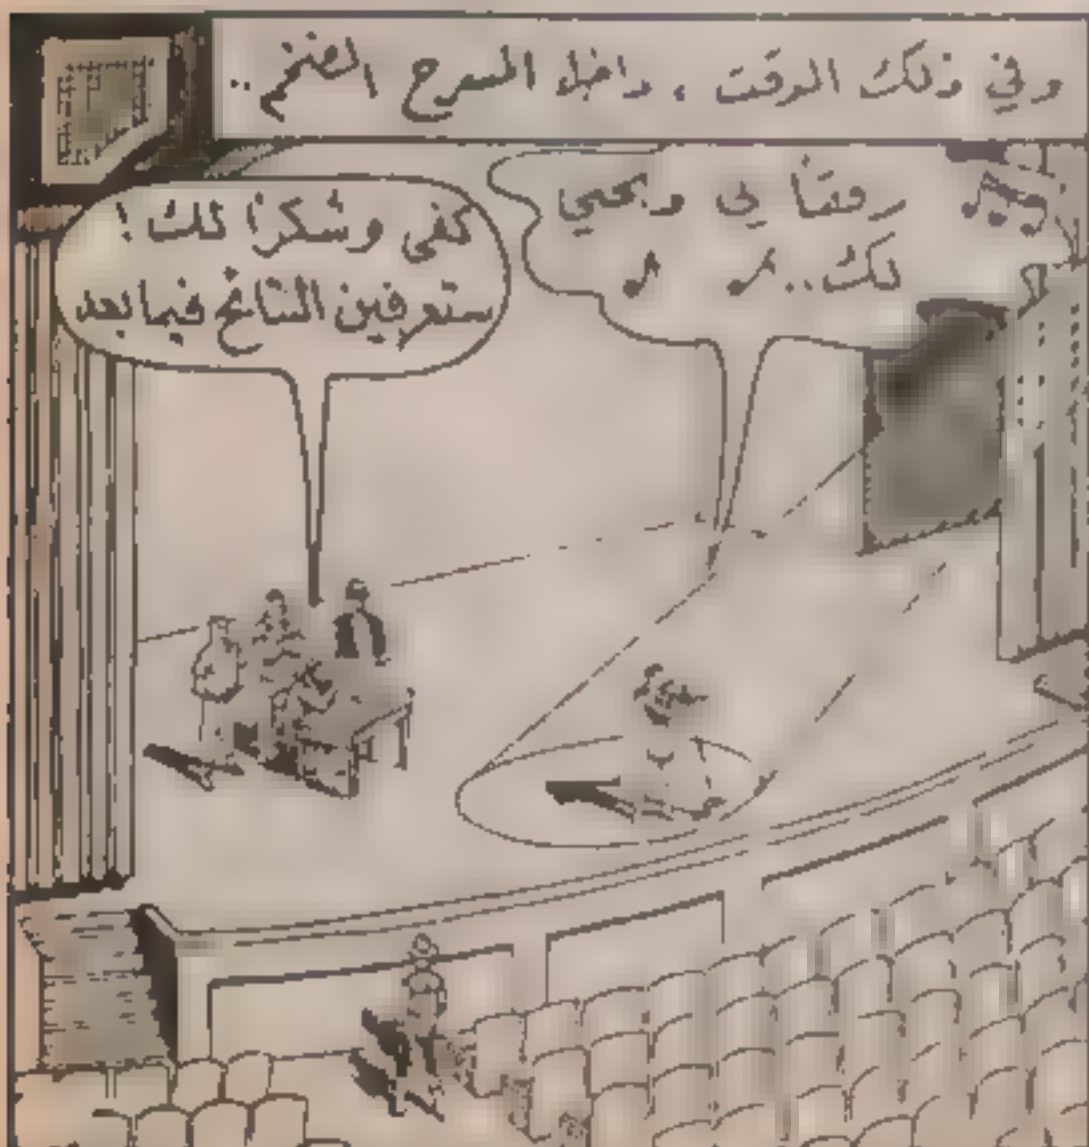 وفي ذلك الوقت ، داخل المسرح الضخم ..
رفقاً بي وبحبي
لك..
كفى وشكراً لك !
ستعرفين النتائج فيما بعد